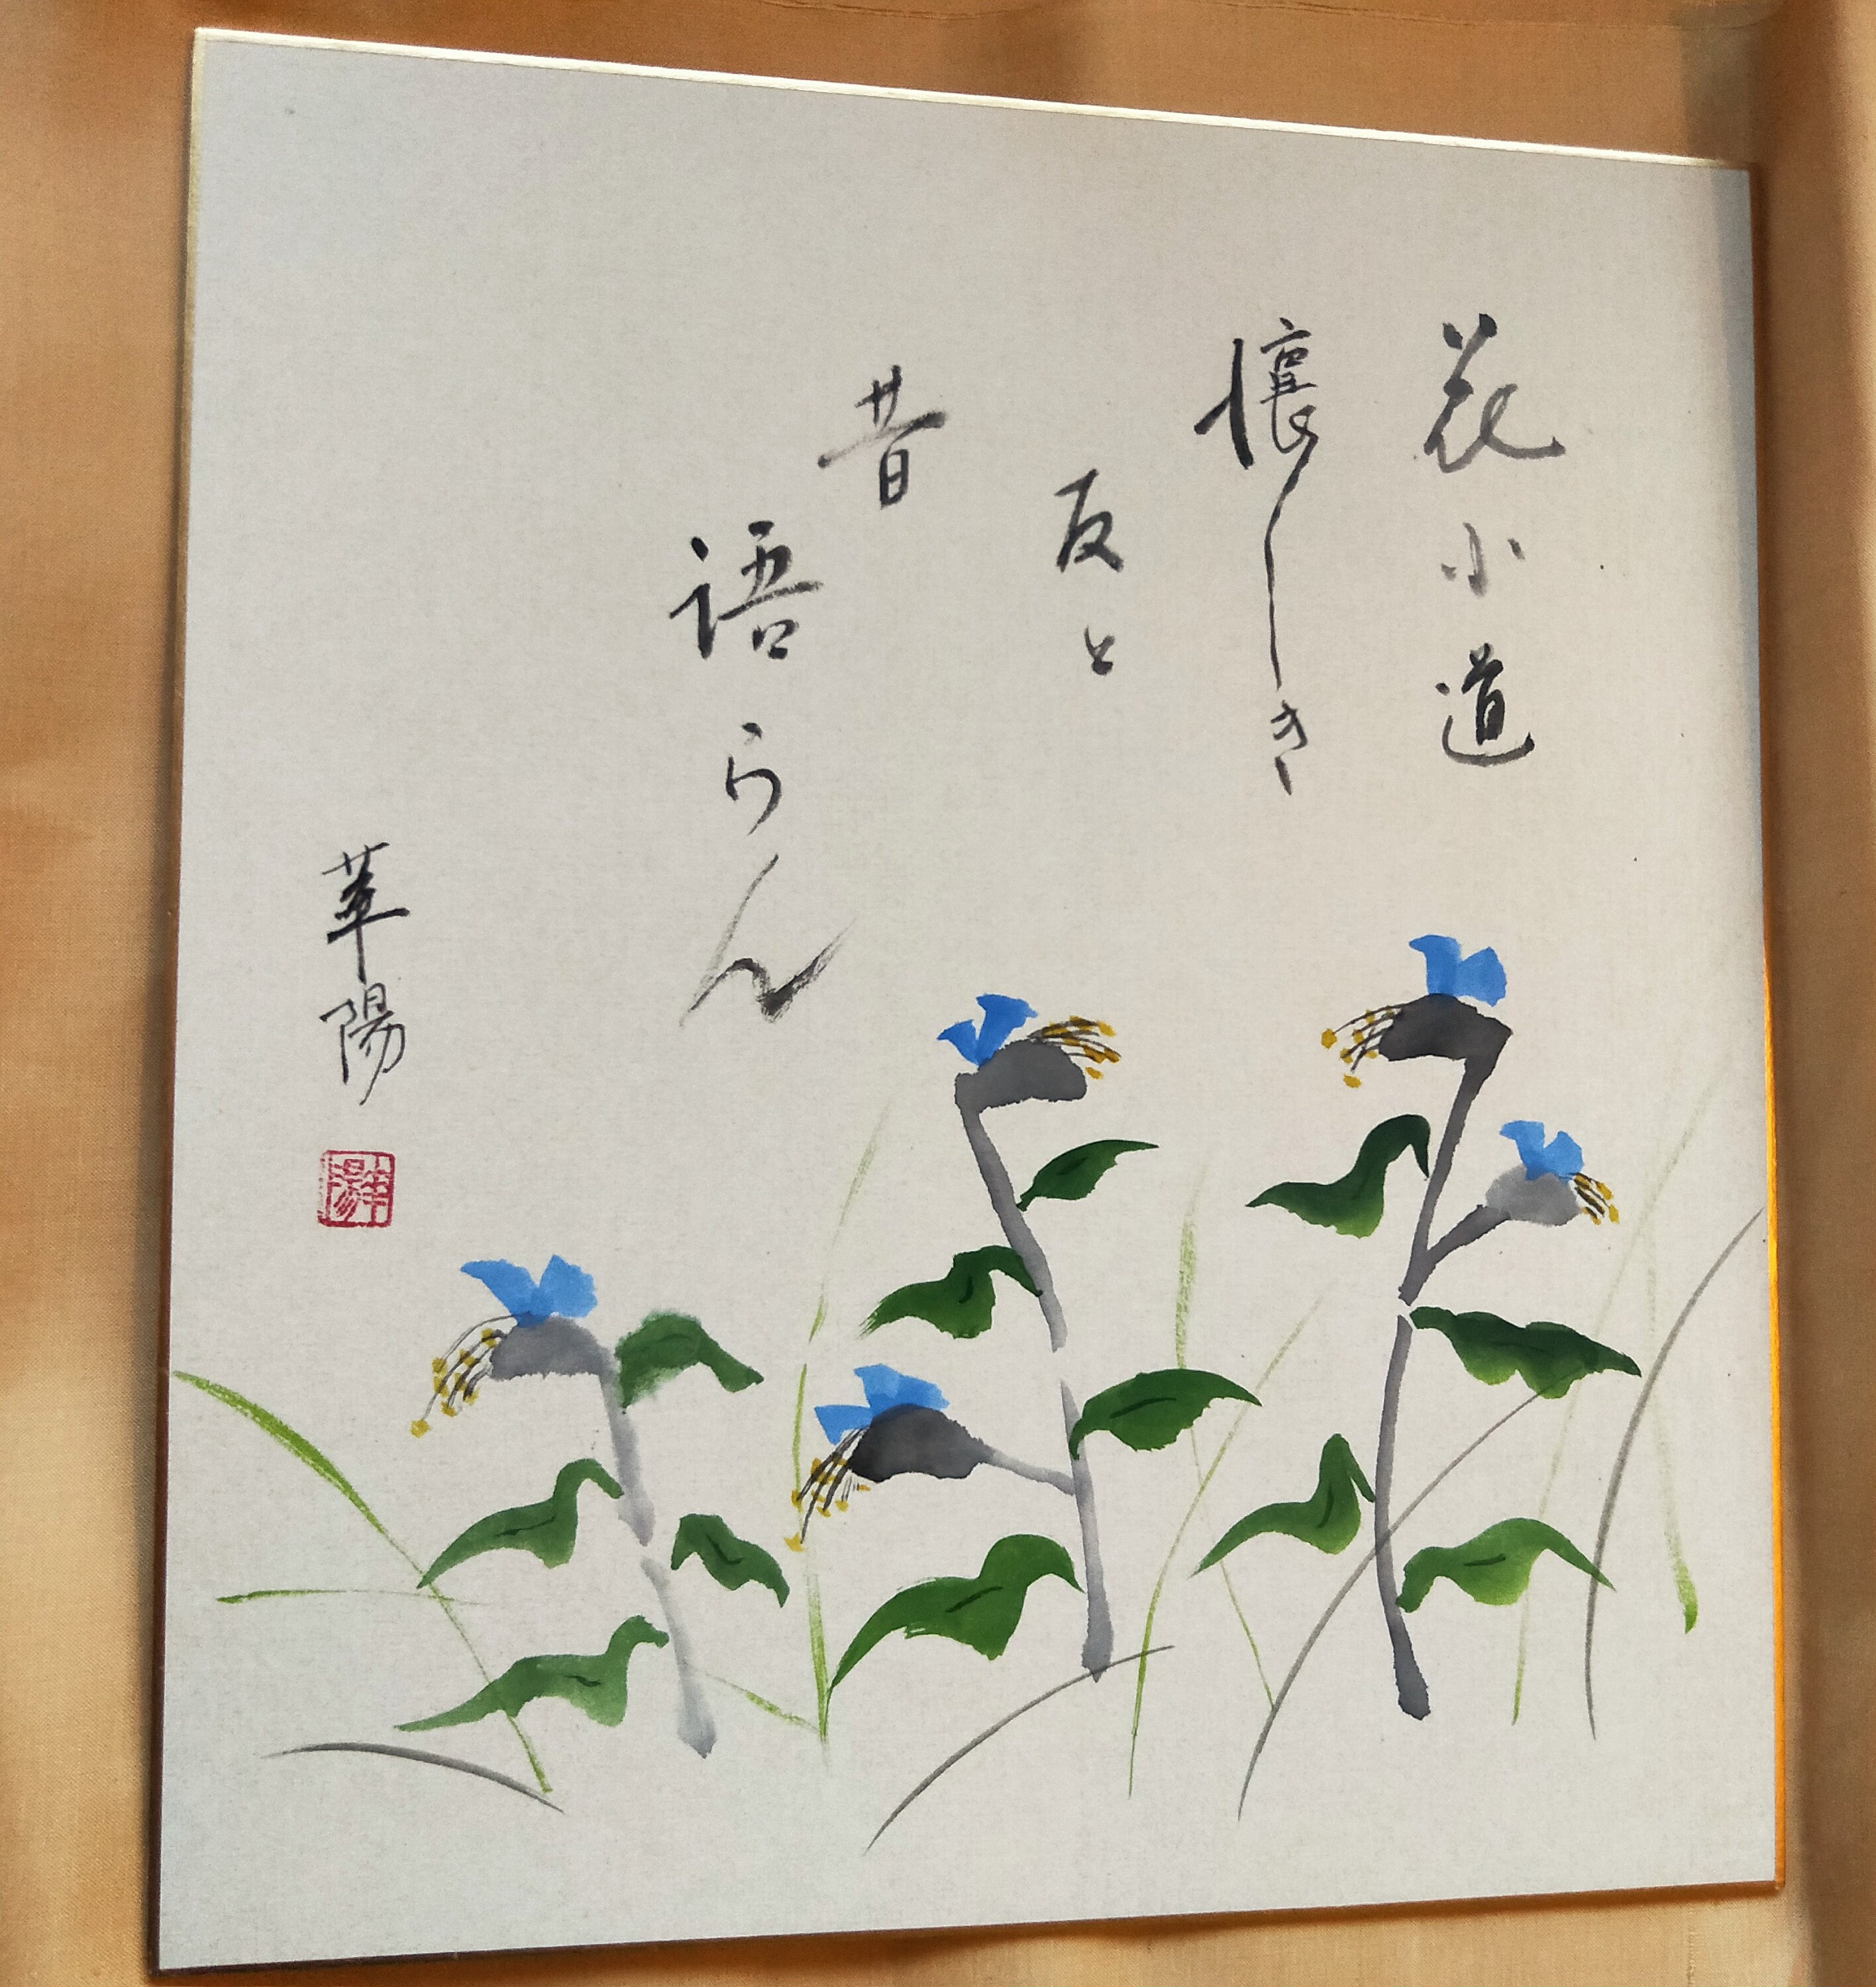 花小道
懐しき
友と
昔
語らん
華陽